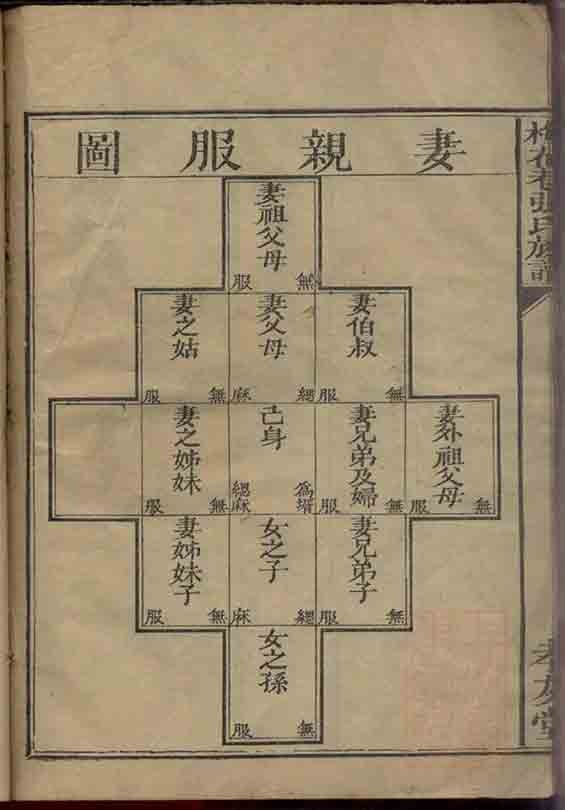 妻親服圖
妻祖父母
無服
妻伯叔
無服
妻父母
緦麻
妻之姑
無服
妻外祖父母
無服
妻兄弟及婦
無服
己身
爲壻緦麻
妻之姊妹
無服
妻兄弟子
無服
女之子
緦麻
妻姊妹子
無服
女之孫
無服
張氏族譜
孝友堂